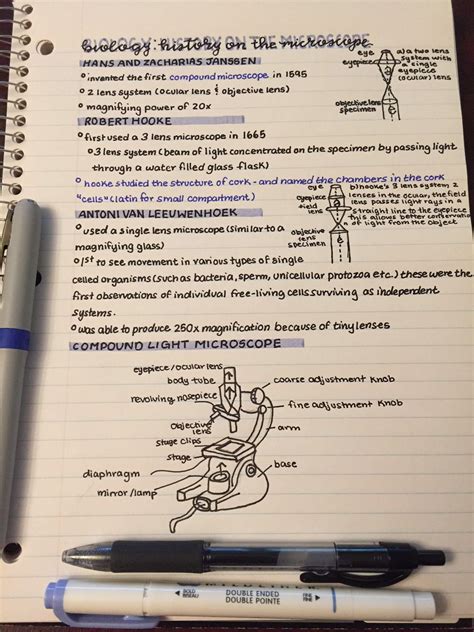 biology: history on the microscope
HANS AND ZACHARIAS JANSSEN
invented the first compound microscope in 1595
2 lens system (ocular lens & objective lens)
magnifying power of 20x
eye
eyepiece
objective lens
specimen
a) a two lens
system with
a single
eyepiece
(ocular) lens
ROBERT HOOKE
first used a 3 lens microscope in 1665
3 lens system (beam of light concentrated on the specimen by passing light
through a water filled glass flask)
hooke studied the structure of cork - and named the chambers in the cork
"cells" (latin for small compartment)
eye
eyepiece
field
lens
objective
lens
specimen
b) hooke's 3 lens system; 2
lenses in the ocular, the field
lens passes light rays in a
straight line to the eyepiece
this allows better
of light from the object
ANTONI VAN LEEUWENHOEK
used a single lens microscope (similar to a
magnifying glass)
1st to see movement in various types of single
celled organisms (such as bacteria, sperm, unicellular protozoa etc.) these were the
first observations of individual free-living cells surviving as independent
systems.
was able to produce 250x magnification because of tiny lenses
COMPOUND LIGHT MICROSCOPE
eyepiece/ocular lens
body tube
revolving nosepiece
objective
lens
stage clips
stage
diaphragm
mirror/lamp
coarse adjustment knob
fine adjustment knob
arm
base
BOLD
DOUBLE ENDED
DOUBLE POINTE
FINE